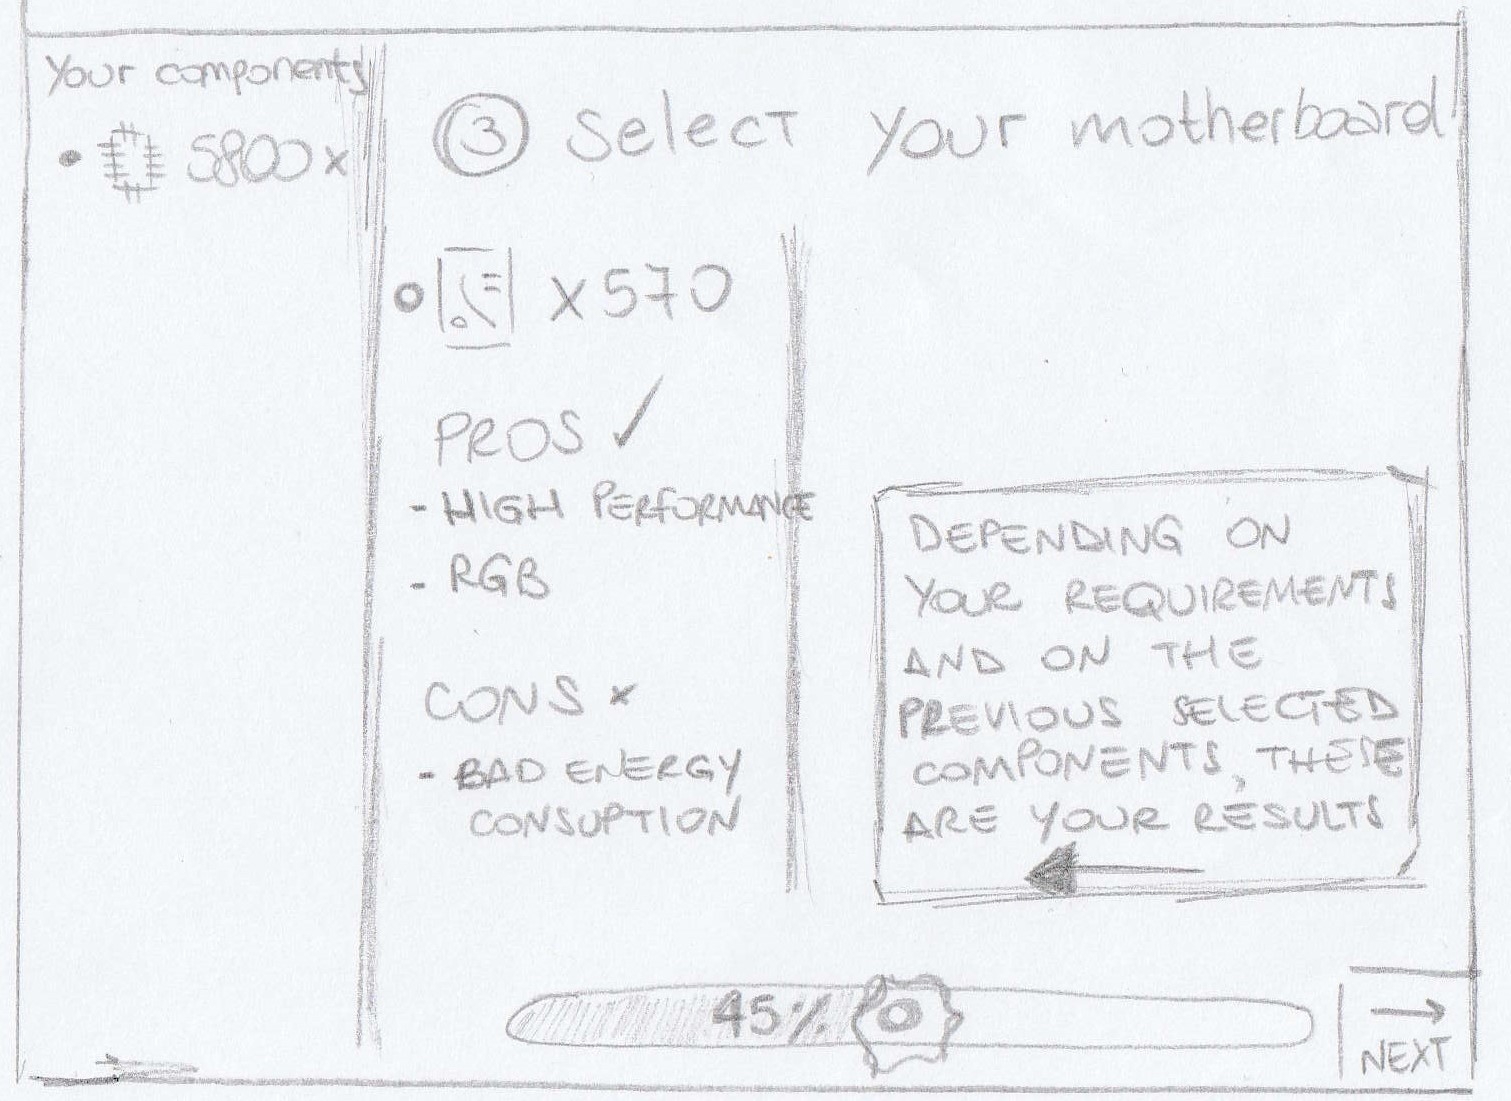 Your components
5800x
3 Select your motherboard
x570
PROS ✓
- HIGH PERFORMANCE
- RGB
CONS x
- BAD ENERGY
CONSUPTION
DEPENDING ON
YOUR REQUIREMENTS
AND ON THE
PREVIOUS SELECTED
COMPONENTS, THESE
ARE YOUR RESULTS
45%
NEXT